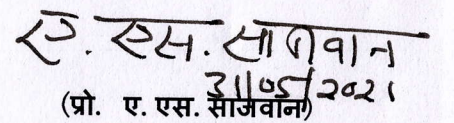 ए. एस. साजवान
31/05/2021
(प्रो. ए. एस. साजवान)